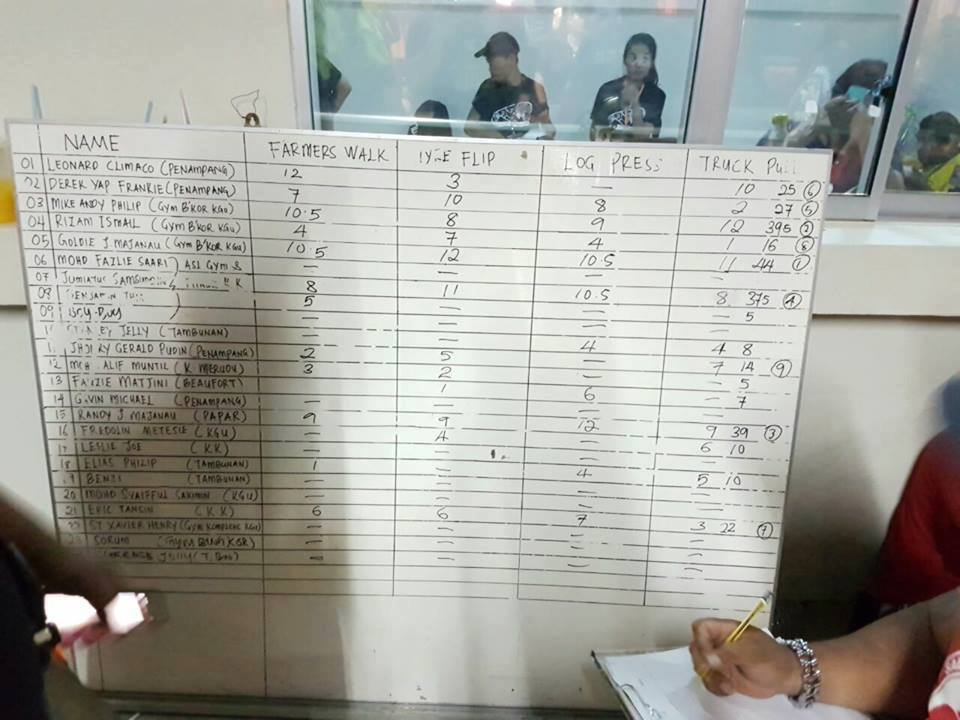 NAME FARMERS WALK TYRE FLIP LOG PRESS TRUCK PULL
01 LEONARD CLIMACO (PENAMPANG) 12 3 — 10 25 (6)
02 DEREK YAP FRANKIE (PENAMPANG) 7 10 8 2 27 (5)
03 MIKE ANDY PHILIP (GYM B'KOR KGU) 10.5 8 9 12 395 (2)
04 RIZAM ISMAIL (GYM B'KOR KGU) 4 7 4 1 16 (8)
05 GOLDIE J. MAJANAU (GYM B'KOR KGU) 10.5 12 10.5 11 44 (1)
06 MOHD FAZLIE SAARI ASI GYM — — — —
07 JUMIATUR 8 11 10.5 8 375 (4)
08 5 — — — 5
09 — — — —
JELLY (TAMBUNAN) — — — —
GERALD PUDIN (PENAMPANG) 2 5 4 4 8
12 ALIF MUNTIL (K. MERUDU) 3 2 — 7 14 (9)
13 FAIZIE MATJINI (BEAUFORT) 1 — 5
14 GAVIN MICHAEL (PENAMPANG) — — 6 — 7
15 RANDY J. MAJANAU (PAPAR) 9 9 12 9 39 (3)
16 FREDOLIN METESIE (KGU) — 4 — 6 10
17 LESLIE JOE (KK) — — — —
18 ELIAS PHILIP (TAMBUNAN) 1 — 4 5 10
BENJI (TAMBUNAN) — — — —
20 MOHD SYAIFFUL SAKIMIN (KGU) — — — —
21 ERIC TANSIN (KK) 6 6 7 3 22 (7)
22 ST XAVIER HENRY (GYM KOMPLEKS KGU) — — — —
SORUM — — — —
— — — —